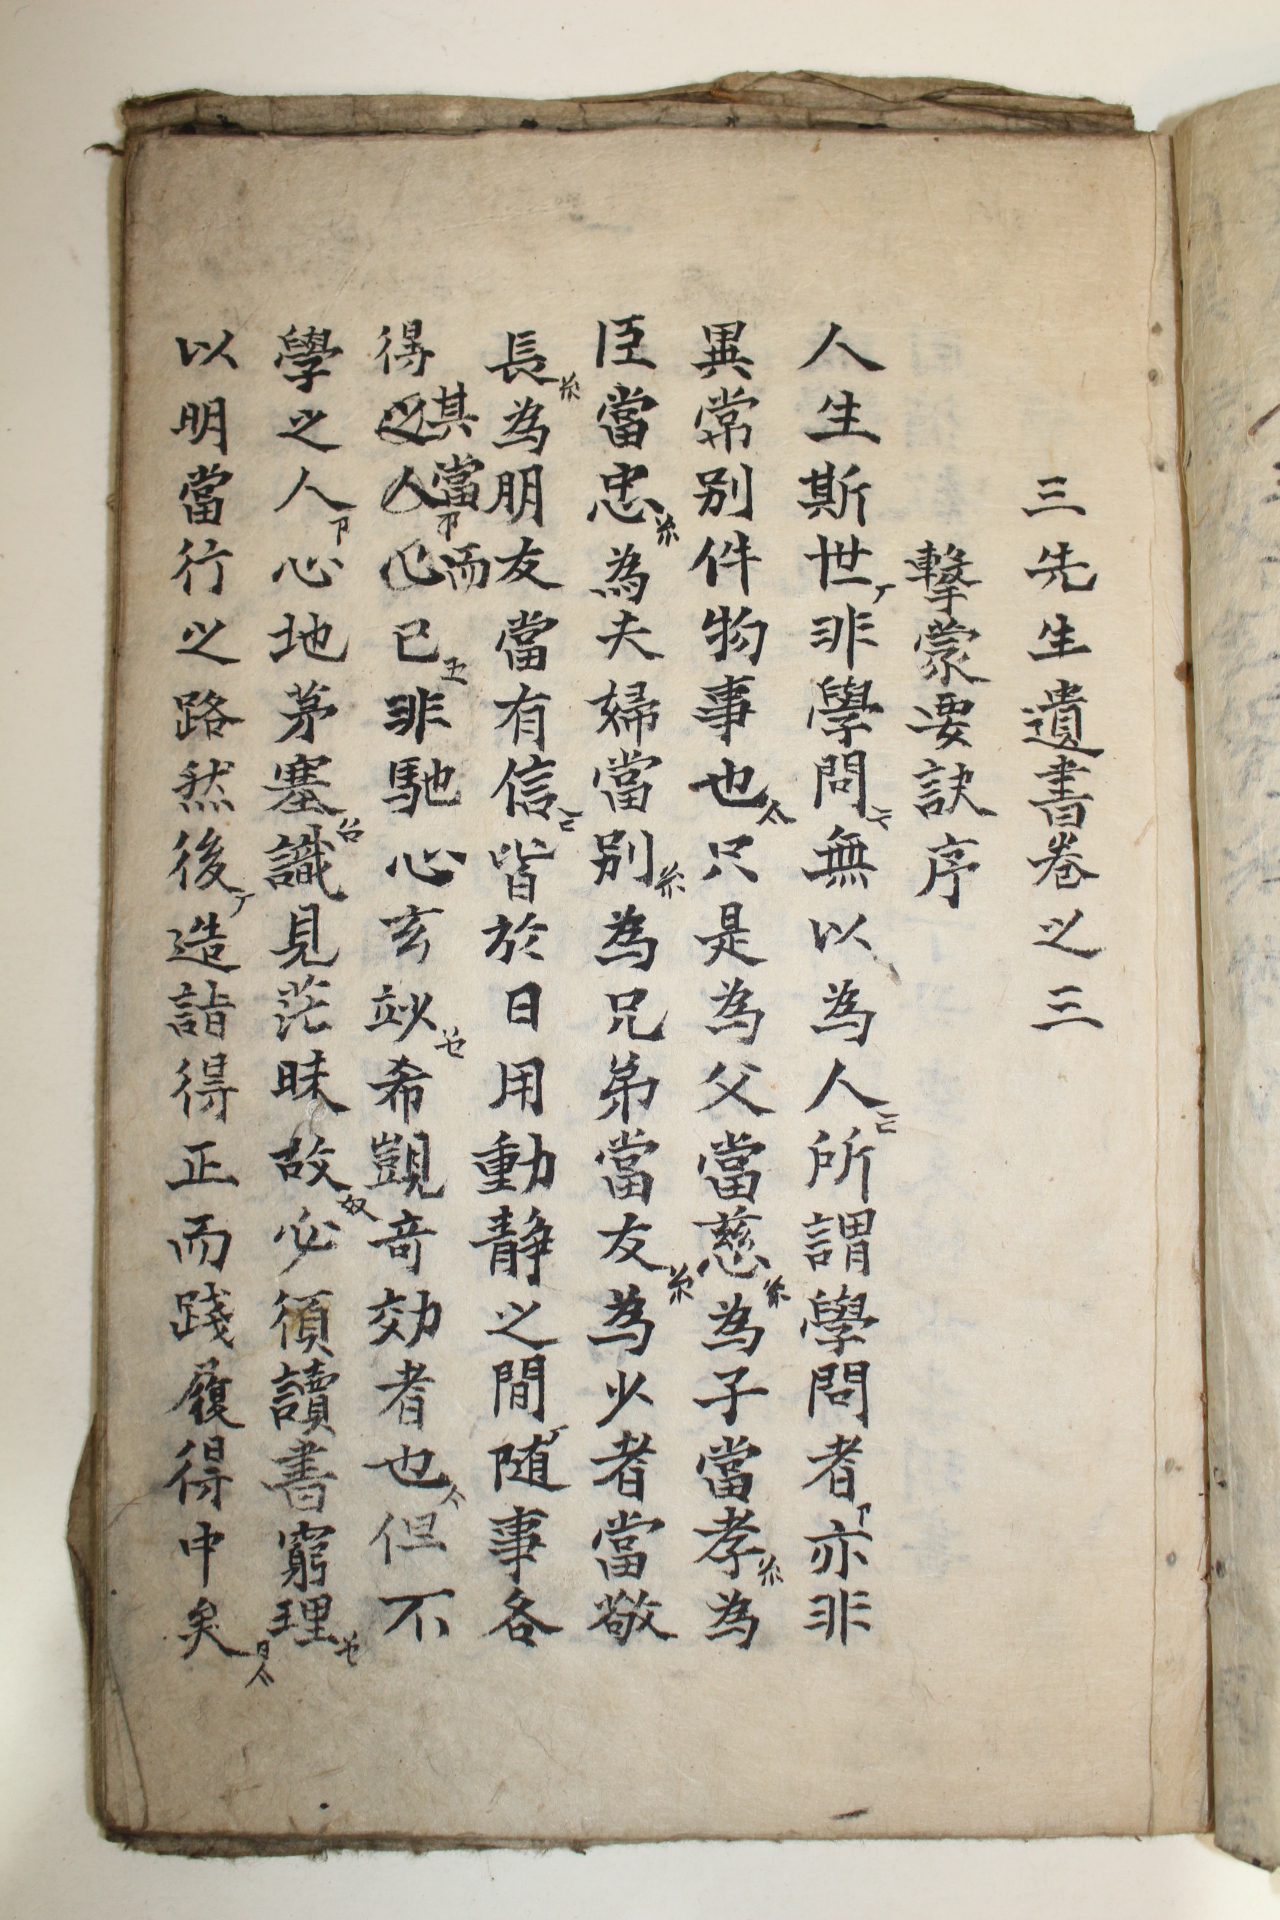 三先生遺書卷之三
擊蒙要訣序
人生斯世非學問無以為人所謂學問者亦非
異常別件物事也只是為父當慈為子當孝為
臣當忠為夫婦當別為兄弟當友為少者當敬
長為朋友當有信皆於日用動静之間随事各
得其當而已非馳心玄竗希覬奇効者也但不
學之人心地茅塞識見茫昧故必須讀書窮理
以明當行之路然後造詣得正而踐履得中矣